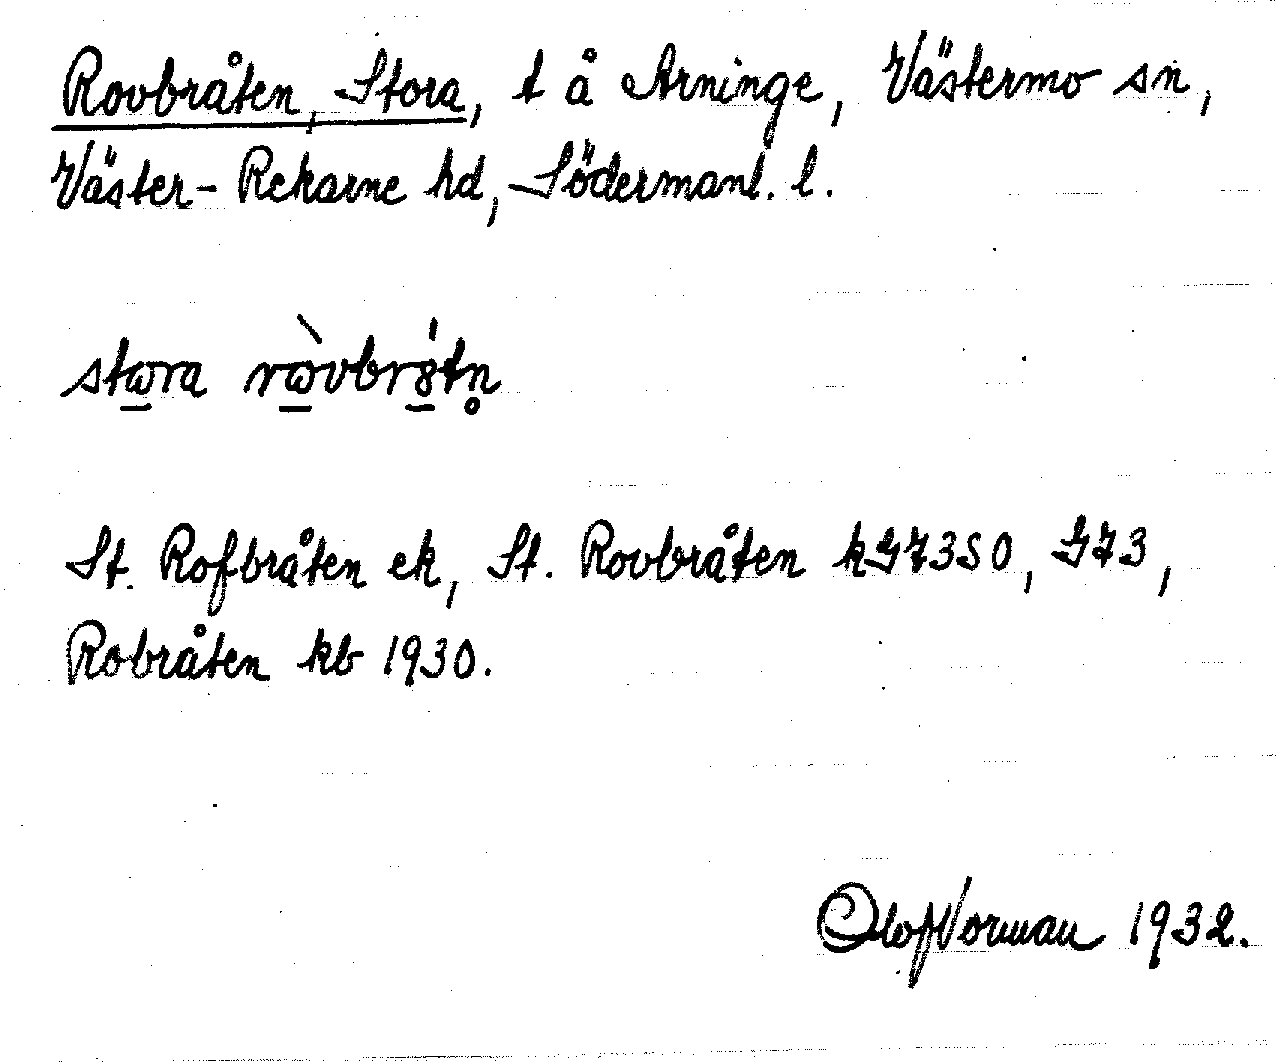 Rovbråten, Stora, t å Arninge, Västermo sn,
Väster-Rekarne hd, Södermanl. l.
stωra rωvbrȣtn̥
St. Rofbråten ek, St. Rovbråten kGJ73SO, GJ73,
Robråten kb 1930.
Olof Vorman 1932.